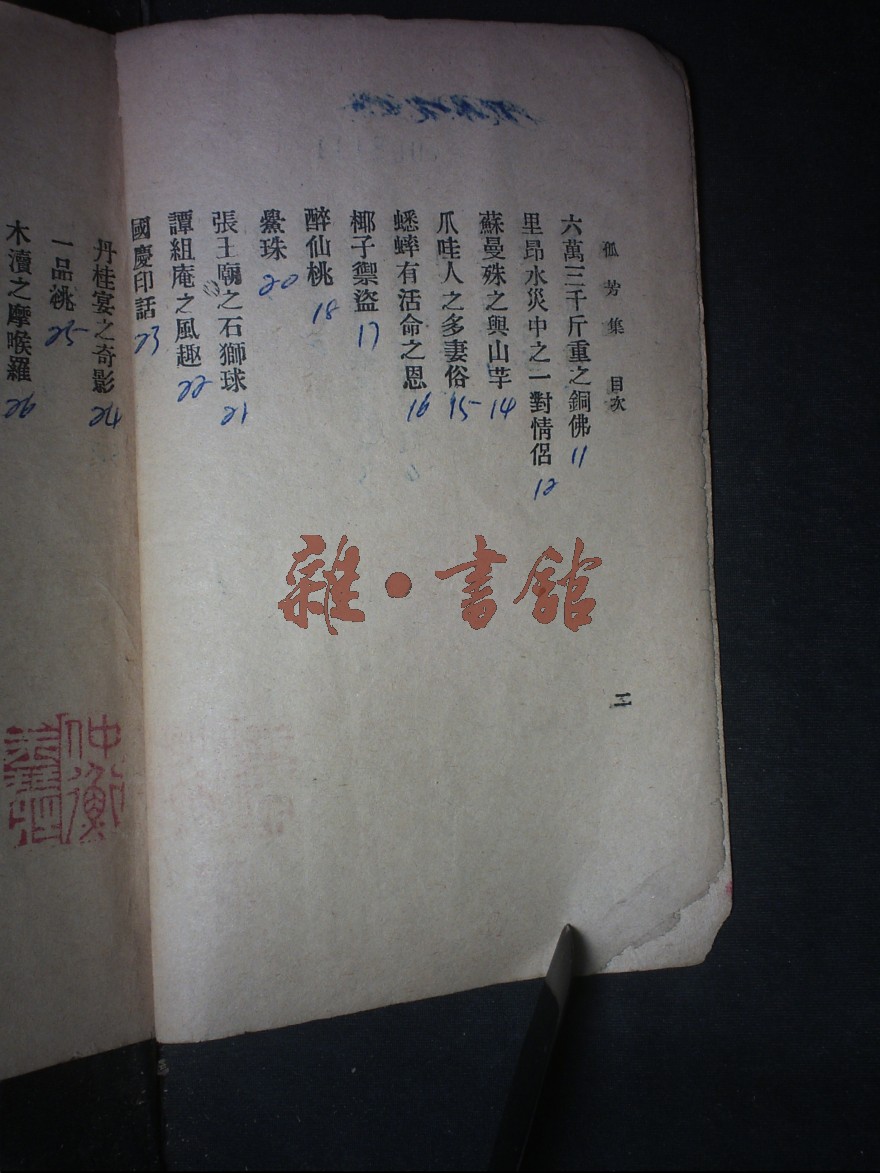 孤芳集 目次
六萬三千斤重之銅佛 11
里昂水災中之一對情侶 12
蘇曼殊之與山芋 14
爪哇人之多妻俗 15
蟋蟀有活命之恩 16
椰子禦盜 17
醉仙桃 18
鱟珠 20
張王廟之石獅球 21
譚組庵之風趣 22
國慶印話 23
丹桂宴之奇影 24
一品祧 25
木瀆之摩喉羅 26
二
雜·書館
仲衡